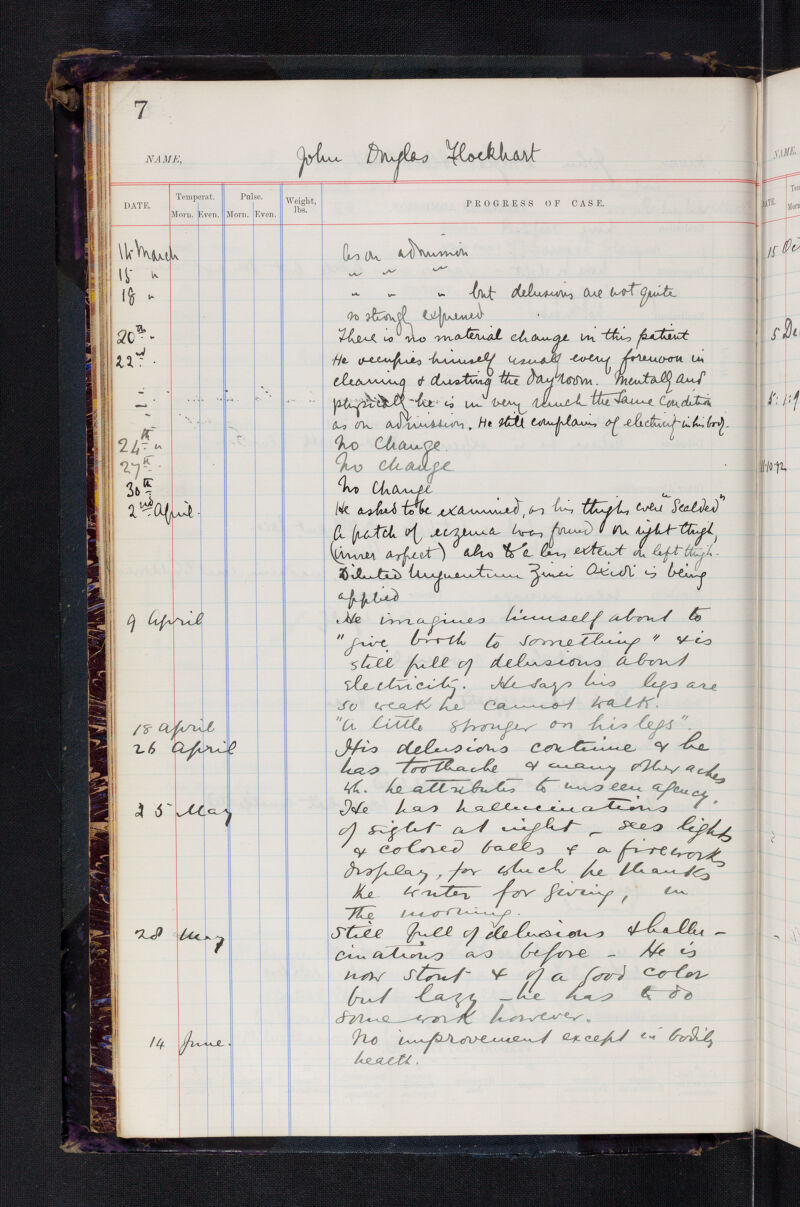 7
NAME, John Douglas Flockhart
DATE. Temperat. Pulse. Weight, lbs. PROGRESS OF CASE.
Morn. Even. Morn. Even.
14 March As on admission
15 " " " "
18 " " " " but delusions are not quite
so strongly expressed
20th " There is no material change in this patient
22nd " He occupies himself usually every forenoon in
cleaning & dusting the dayroom. Mentally and
physically he is in very much the same condition
as on admission. He still complains of electricity in his body.
24th " No change.
27th " No change
30th No change
2nd April. He asked to be examined, as his thighs were "scalded"
A patch of eczema was found on right thigh,
(inner aspect) also to a less extent on left thigh.
Diluted Unguentum Zinci Oxidi is being
applied
9 April He imagines himself about to
"give broth to something" & is
still full of delusions about
electricity. He says his legs are
so weak he cannot walk.
18 April "A little stronger on his legs".
26 April His delusions continue & he
has toothache & many other aches
wh. he attributes to unseen agency.
25 May He has hallucinations
of sight at night - sees lights
& colored balls & a fireworks
display, for which he thanks
the writer for giving, in
the morning.
28 May Still full of delusions & hallu-
cinations as before - He is
now stout & of a good color
but lazy - he has to do
some work however.
14 June. No improvement except in bodily
health.
NAME.
15 Oct